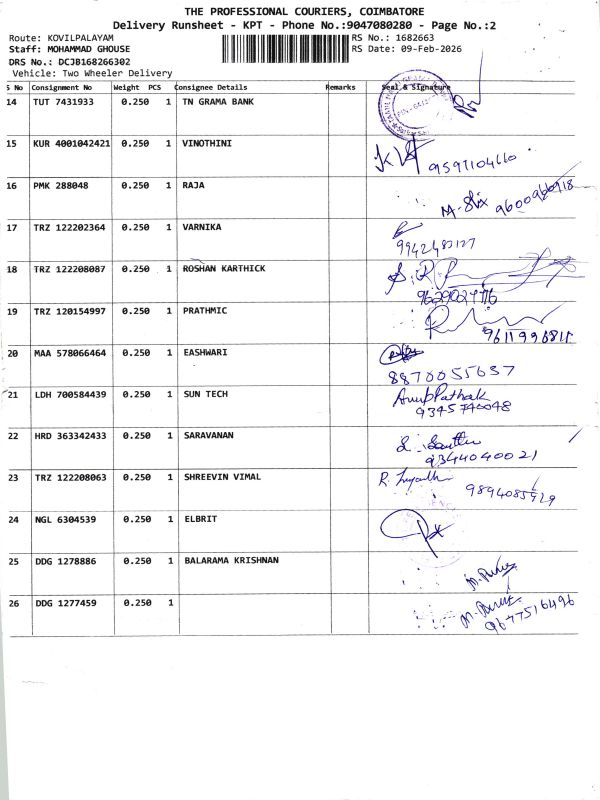 THE PROFESSIONAL COURIERS, COIMBATORE
Delivery Runsheet - KPT - Phone No.:9047080280 - Page No.:2
Route: KOVILPALAYAM
RS No.: 1682663
Staff: MOHAMMAD GHOUSE
RS Date: 09-Feb-2026
DRS No.: DCJB168266302
Vehicle: Two Wheeler Delivery
S No Consignment No Weight PCS Consignee Details Remarks Seal & Signature
14 TUT 7431933 0.250 1 TN GRAMA BANK
15 KUR 4001042421 0.250 1 VINOTHINI
9597104660
16 PMK 288048 0.250 1 RAJA
17 TRZ 122202364 0.250 1 VARNIKA
18 TRZ 122208087 0.250 1 ROSHAN KARTHICK
19 TRZ 120154997 0.250 1 PRATHMIC
20 MAA 578066464 0.250 1 EASHWARI
8870055637
21 LDH 700584439 0.250 1 SUN TECH
Anup Pathak
9345740048
22 HRD 363342433 0.250 1 SARAVANAN
9344040021
23 TRZ 122208063 0.250 1 SHREEVIN VIMAL
24 NGL 6304539 0.250 1 ELBRIT
25 DDG 1278886 0.250 1 BALARAMA KRISHNAN
26 DDG 1277459 0.250 1
9677516496